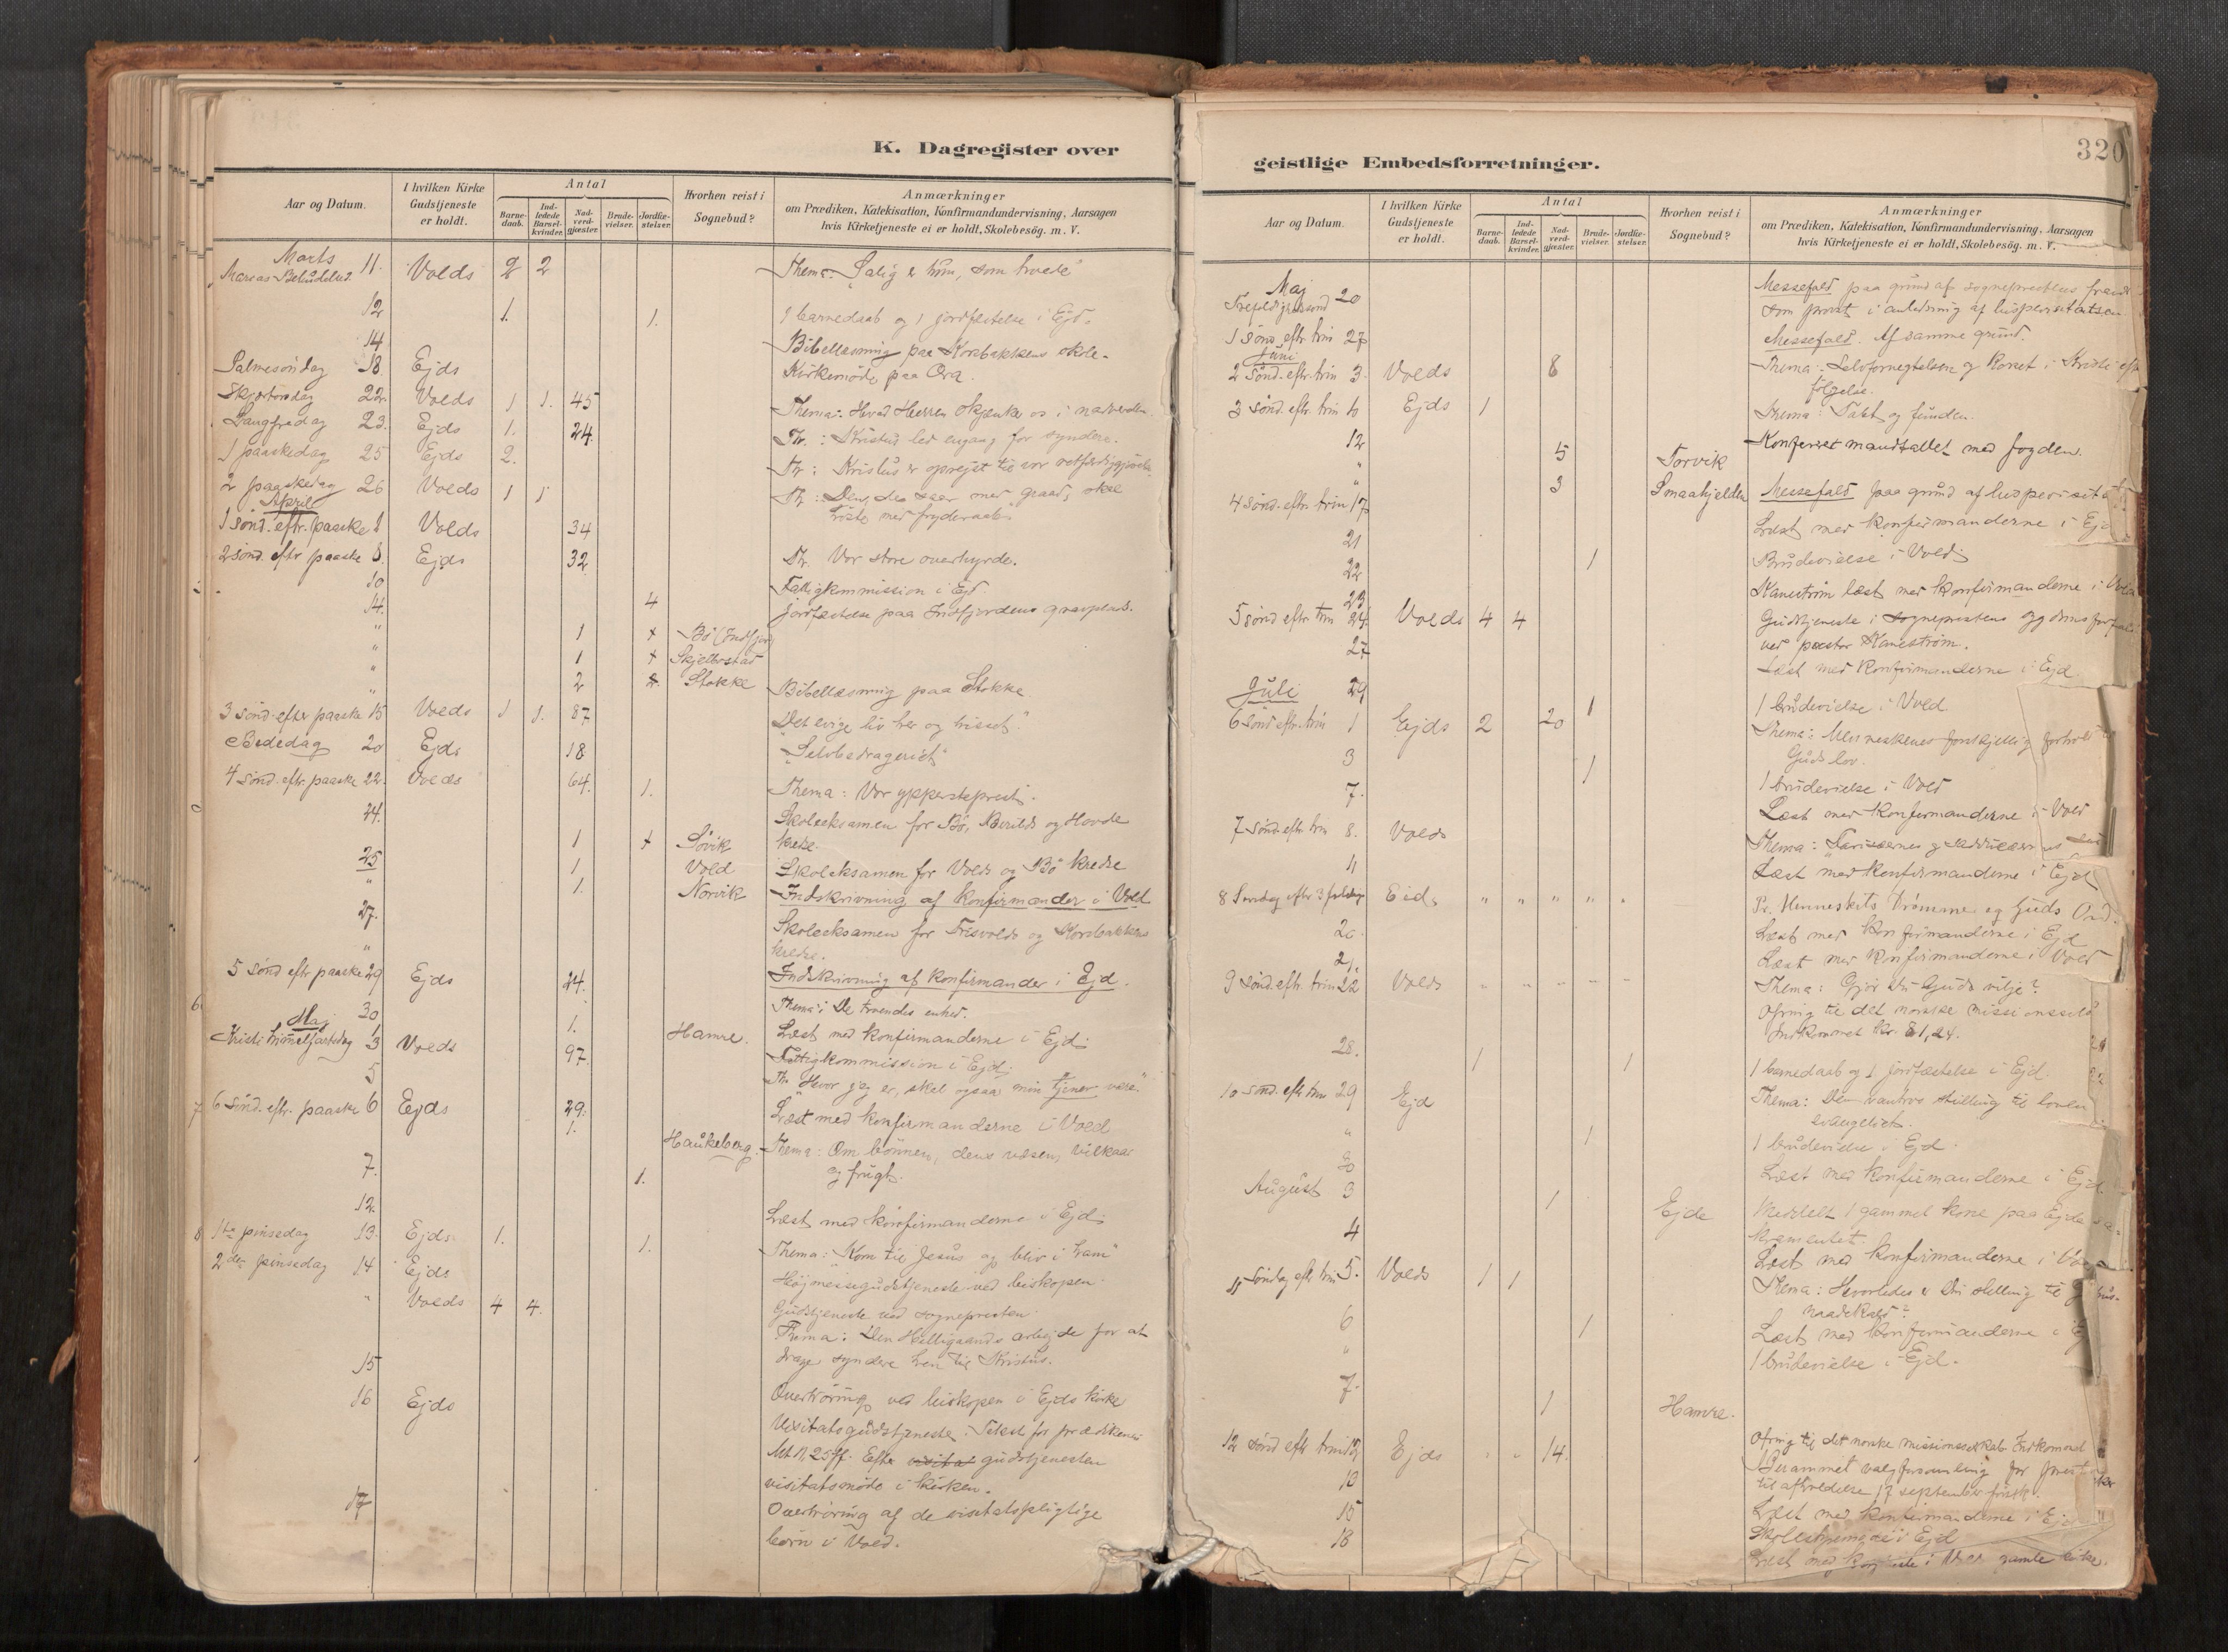 K. Dagregister over
Aar og Datum.
I hvilken Kirke Gudstjeneste er holdt.
Antal
Barnedaab.
Indledede Barselkvinder.
Nadverdgjæster.
Brudevielser.
Jordfæstelser.
Hvorhen reist i Sognebud?
Anmærkninger
om Prædiken, Katekisation, Konfirmandundervisning, Aarsagen
hvis Kirketjeneste ei er holdt, Skolebesög. m. V.
Marts
11. Volds 2 2 Thema: Salig er hun, som troede
12 1. 1. 1 barnedaab og 1 jordfæstelse i Ejd.
14 Bibellæsning paa Korsbakkens skole.
Palmesöndag 18. Ejds Kirkemöde paa Ora.
Skjærtorsdag 22. Volds 1 1. 45 Thema: Hvad Herren skjænker os i nadverden.
Langfredag 23. Ejds 1. 24. Th.: Kristus led engang for syndere.
1 paaskedag 25 Ejds 2. Th: Kristus er oprejst til vor retfærdiggjörelse
2 paaskedag 26 Volds 1 1 Th: Den, der saar med graad, skal
höste med fryderaab.
April
1 sönd. eftr. paaske 1 Volds 34
2 sönd. eftr paaske 8. Ejds 32 Th. Vor store overhyrde.
10 Fattigkommission i Ejd.
14. 4 jordfæstelse paa Indfjordens gravplads.
" 1 + Bö (Indfjord)
" 1 + Skjelbostad
" 2 Stokke
" Bibellæsning paa Stokke
3 sönd. efter paaske 15 Volds 1 1. 87 "Det evige liv her og hisset".
Bededag 20 Ejds 18 "Selvbedrageriet"
4 sönd. eftr. paaske 22. Volds 64. 1. Thema: Vor ypperstepræst.
24. Skoleeksamen for Bö, Berilds og Hovde
1 + Sövik kredse.
25 1. Vold Skoleeksamen for Volds og Bö kredse
" 1. Norvik Indskrivning af konfirmander i Vold
27. Skoleeksamen for Trisvolds og Korsbakkens
" kredse.
5 sönd eftr paaske 29 Ejds 24. Indskrivning af konfirmander i Ejd.
30 Thema: De troendes enhed.
Maj 1. Hamre. Læst med konfirmanderne i Ejd.
Kristi himmelfartsdag 3 Volds 97. Fattigkommission i Ejd.
5 Th. "Hvor jeg er, skal ogsaa min tjener være"
6 sönd. eftr. paaske 6 Ejds 29. Læst med konfirmanderne i Vold
1. Haukeberg. Thema: Om bönnen, dens væsen, vilkaar
7. 1. og frugt.
12. Læst med konfirmanderne i Ejd.
1ste pinsedag 13. Ejds 1. 1. Thema: "Kom til Jesus og bliv i ham"
2den pinsedag 14 Ejds Höjmessegudstjeneste ved biskopen.
" Volds 4 4. Gudstjeneste ved sognepresten.
Thema: Den Helligaands arbejde for at
15 drage syndere hen til Kristus.
16 Ejds Overhöring ved biskopen i Ejds kirke
Visitatsgudstjeneste. Tekst for prædikenen
Mt. 11,25 ff. Efter gudstjenesten
visitatsmöde i kirken.
17 Overhöring af de visitatspligtige
börn i Vold.
geistlige Embedsforretninger.
320
Aar og Datum.
I hvilken Kirke Gudstjeneste er holdt.
Antal
Barnedaab.
Indledede Barselkvinder.
Nadverdgjæster.
Brudevielser.
Jordfæstelser.
Hvorhen reist i Sognebud?
Anmærkninger
om Prædiken, Katekisation, Konfirmandundervisning, Aarsagen
hvis Kirketjeneste ei er holdt, Skolebesög. m. V.
Maj
20 Messefald paa grund af sogneprestens
som provst i anledning af bispevisitatsen
1 sönd eftr. trin 27 Messefald. Af samme grund.
Juni
2 sönd. eftr. trin 3. Volds 8 Thema: Selvfornegtelsen og korset i Kristi
fölgelse.
3 sönd. eftr. trin 10 Ejds 1 Thema: Tabt og funden.
12 Konfereret mandtallet med fogden.
" 5 Torvik
" 3
4 sönd. eftr trin 17 Messefald paa grund af bispevisitat
Læst med konfirmanderne i Ejd
21 1 Brudevielse i Vold.
22 Kanestrøm læst med konfirmanderne i
23
5 sönd eftr trin 24. Volds 4 4 Gudstjeneste i sogneprestens
ved pastor Kanestrøm.
27 Læst med konfirmanderne i Ejd.
29 1 1 brudevielse i Vold
Juli
6 sönd eftr. trin 1 Ejds 2 20 Thema: Menneskenes forskjellig forhold
Guds lov.
3 1 1 brudevielse i Vold
7. Læst med konfirmanderne i Vold
7 sönd. eftr trin 8. Volds Thema: Farisæernes og saddukæernes
11 Læst med konfirmanderne i Ejd
8 Eids " " " " " Pr. Menneskets Drømme og Guds Ord.
20. Læst med konfirmanderne i Ejd
21. Læst med konfirmanderne i Vold
9 sönd. eftr. trin 22 Volds Thema: Gjör du Guds vilje?
Ofring til det norske missionsselsk
Indkommet kr. 81,24.
28. 1 1 1 barnedaab og 1 jordfæstelse i Ejd.
10 sönd. eftr trin 29 Ejd Thema: Den vantros stilling til loven
evangeliet.
" 1 1 brudevielse i Ejd.
30 Læst med konfirmanderne i Ejd.
August 3 1 Ejde Meddelt 1 gammel kone paa Ejde sa-
kramentet.
4 Læst med konfirmanderne i
11 söndag eftr trin 5. Volds 1 1 Thema: Hvorledes er din stilling til
naadekald?
6 Læst med konfirmanderne i
" 1 1 brudevielse i Ejd.
7. 1 Hamre.
12 sönd eftr trin 12 Ejds " " 14. Ofring til det norske missionsselskab Indkommet
Berammet valgforsamling for
til afholdelse 17 september
15 Læst med konfirmanderne i Ejd
i Ejd
Læst med i gamle kirke.